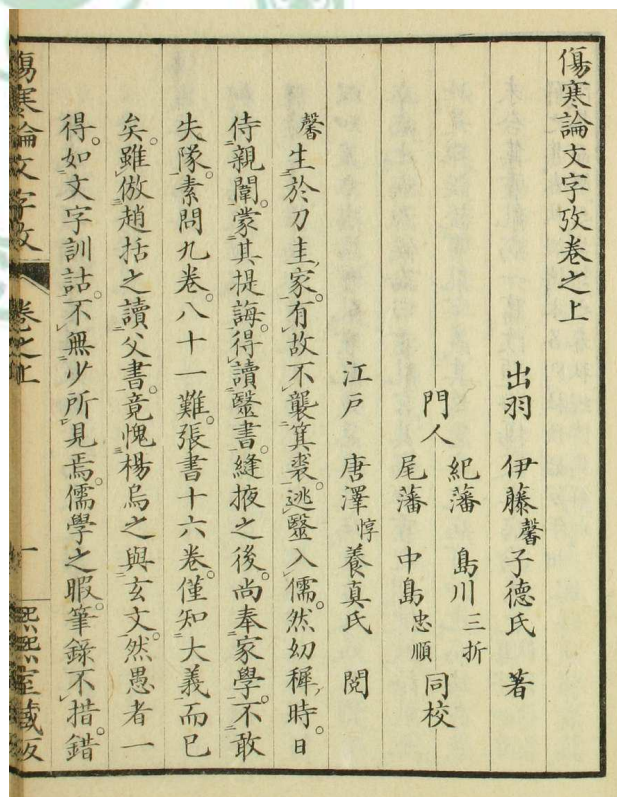 傷寒論文字攷卷之上
出羽 伊藤馨子德氏 著
門人 紀藩 島川三折
尾藩 中島忠順 同校
江戶 唐澤惇養真氏 閱
馨生於刀圭家。有故不襲箕裘。逃毉入儒。然幼穉時。日
侍親闈。蒙其提誨。得讀毉書。縫掖之後。尚奉家學。不敢
失隊。素問九卷。八十一難。張書十六卷。僅知大義而已
矣。雖倣趙括之讀父書。竟愧楊烏之與玄文。然愚者一
得。如文字訓詁。不無少所見焉。儒學之暇。筆錄不措。錯
傷寒論文字攷 卷之上 一 熙熙室藏版